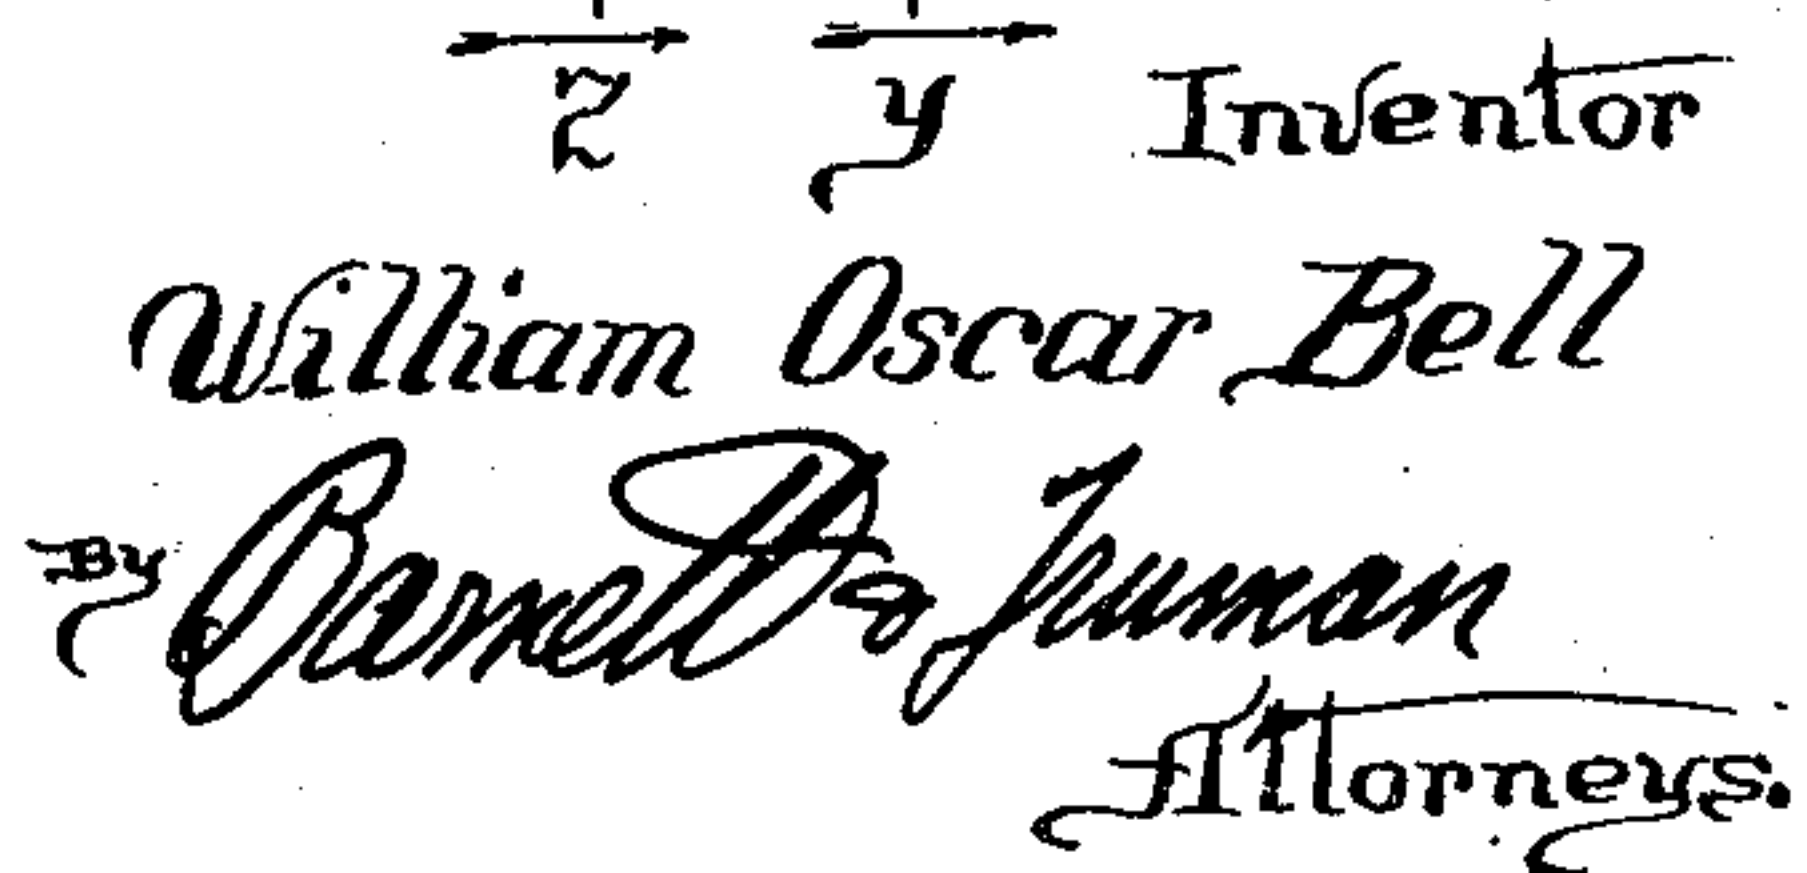 Z y Inventor
William Oscar Bell
By Barnett & Truman
Attorneys.